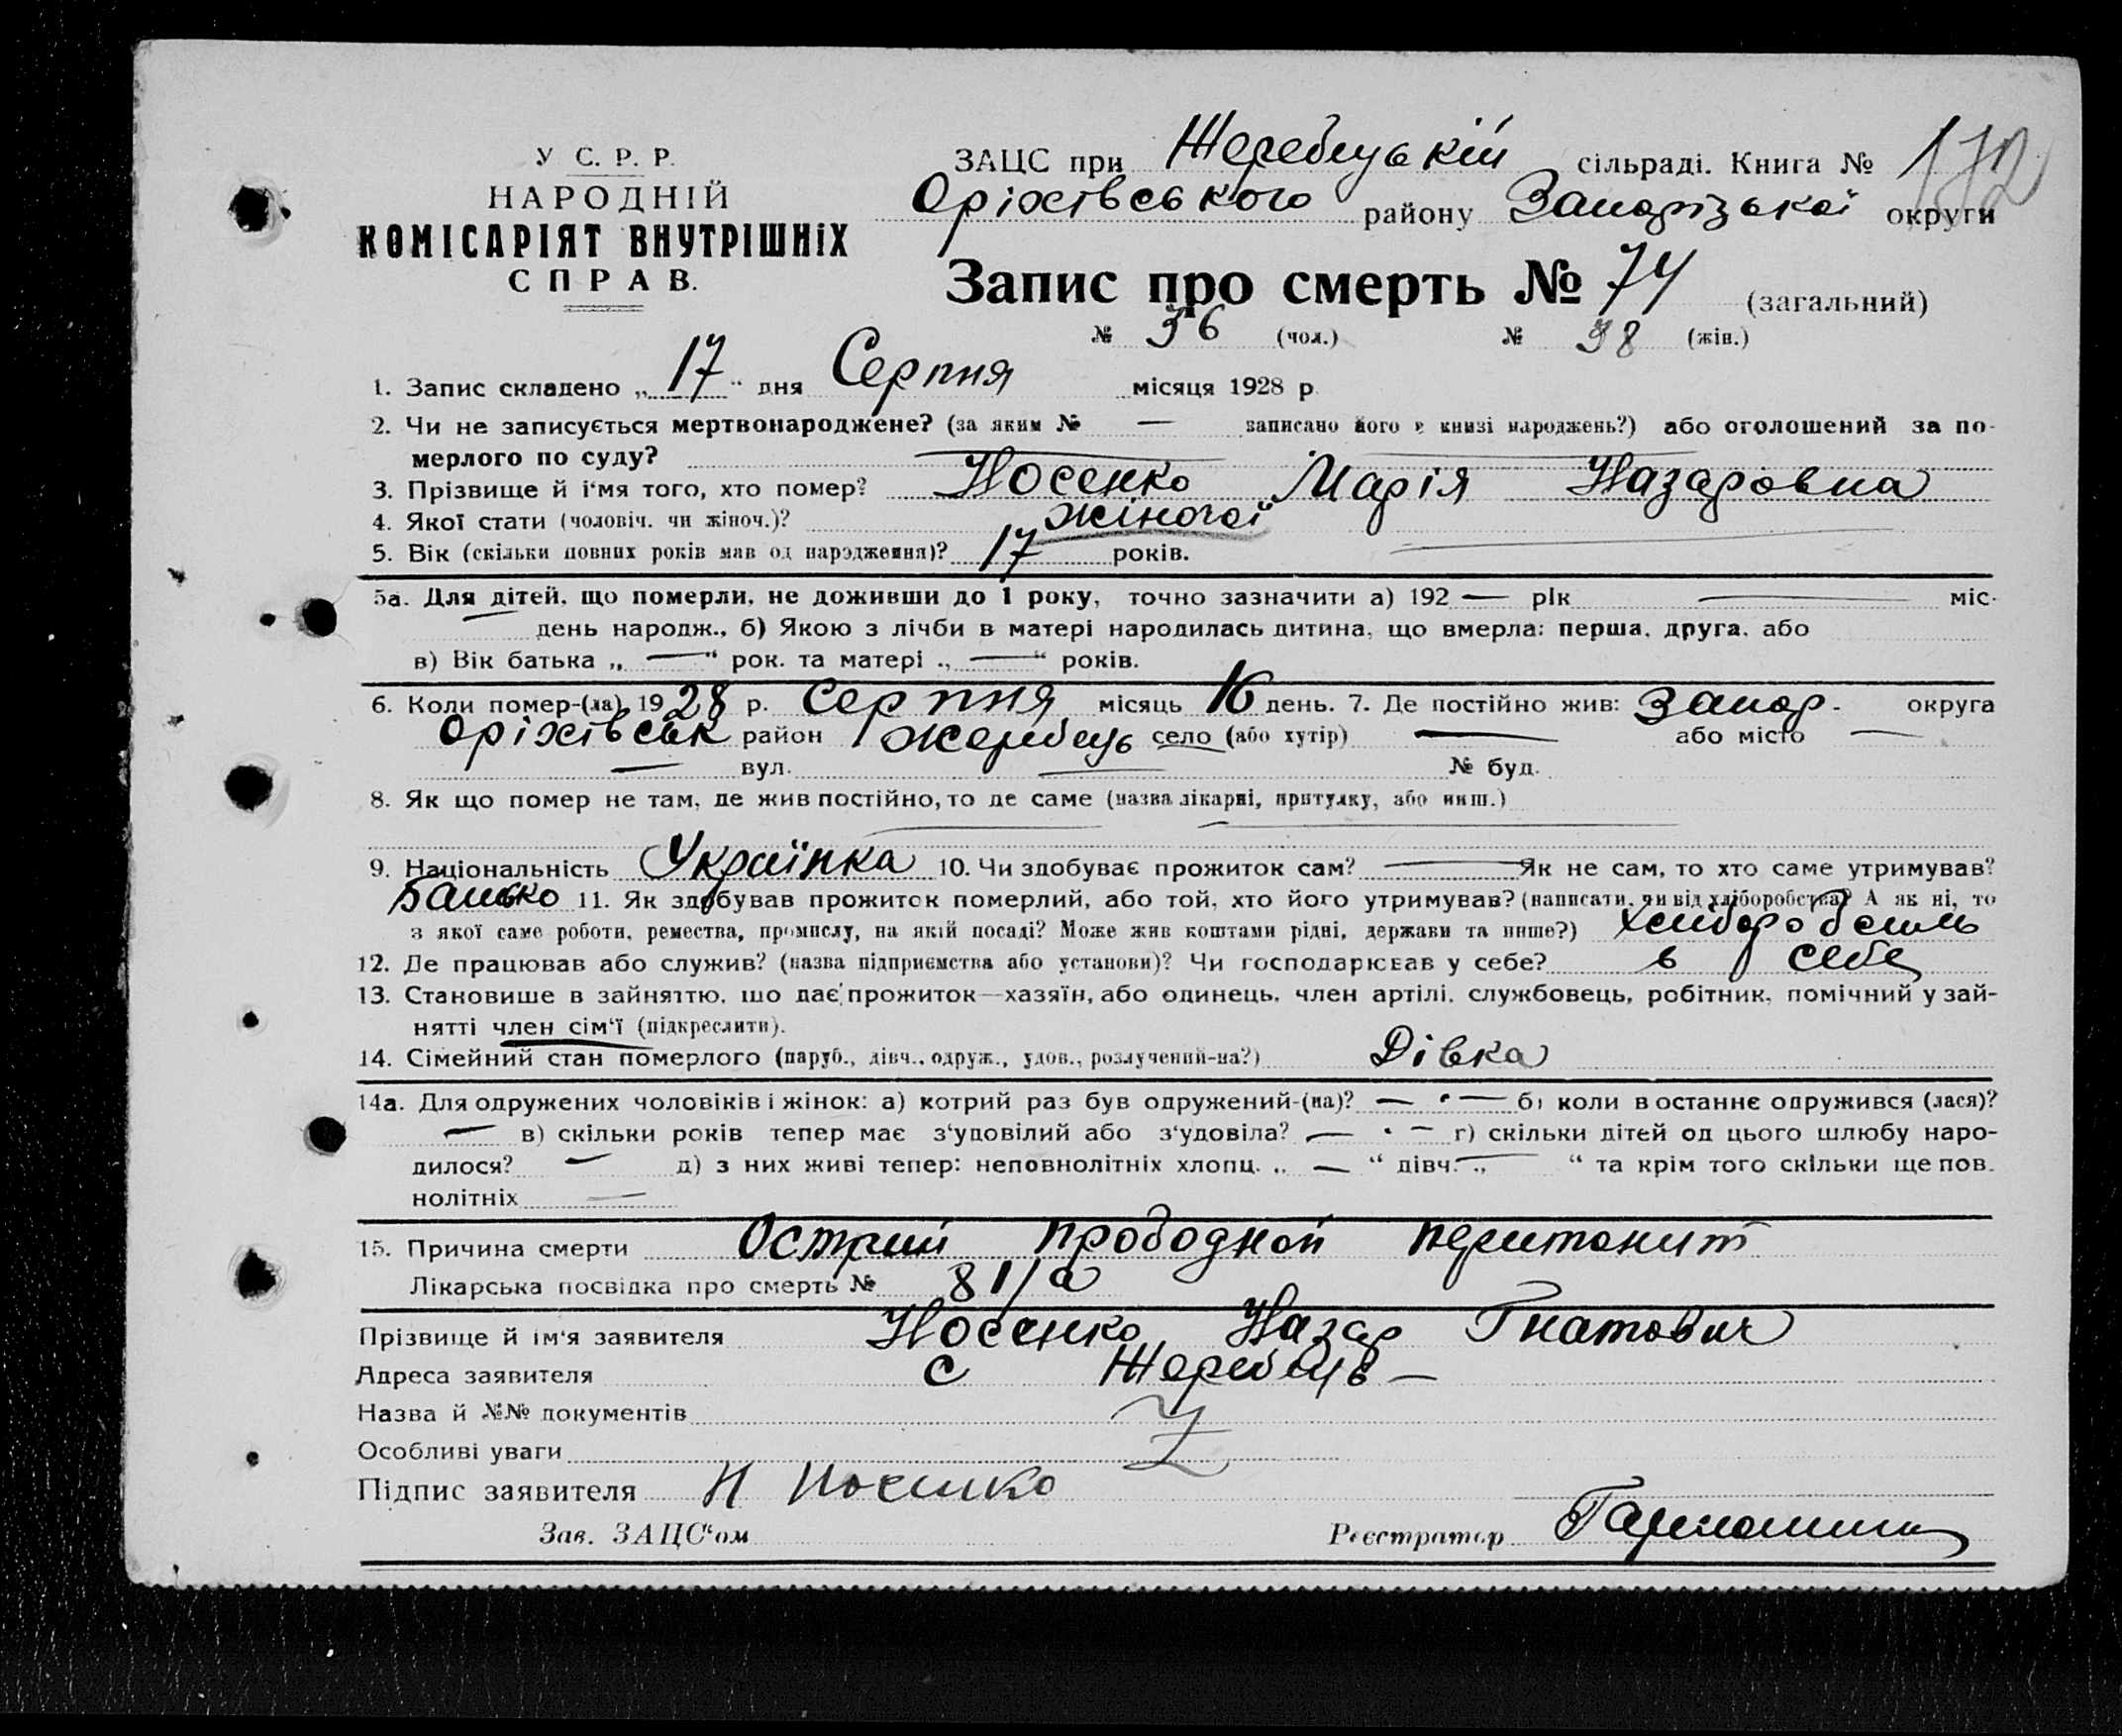 У С. Р. Р.
НАРОДНІЙ
КОМІСАРІЯТ ВНУТРІШНІХ
СПРАВ.
ЗАЦС при Жеребецькій сільраді. Книга № 172
Оріхівського району Запорізької округи
Запис про смерть № 74 (загальний)
№ 36 (чол.) № 38 (жін.)
1. Запис складено „17“ дня Серпня місяця 1928 р.
2. Чи не записується мертвонароджене? (за яким № — записано його в книзі народжень?) або оголошений за по-
мерлого по суду?
3. Прізвище й і‘мя того, хто помер? Носенко Марія Назаровна
4. Якої стати (чоловіч. чи жіноч.)? жіночої
5. Вік (скільки повних років мав од народження)? 17 років.
5а. Для дітей, що померли, не доживши до 1 року, точно зазначити а) 192 — рік — міс.
день народж., б) Якою з лічби в матері народилась дитина, що вмерла: перша, друга, або
в) Вік батька „—“ рок. та матері „—“ років.
6. Коли помер-(ла) 1928 р. Серпня місяць 16 день. 7. Де постійно жив: Запор. округа
Оріхівськ район Жеребець село (або хутір) — або місто —
— вул. — № буд.
8. Як що помер не там, де жив постійно, то де саме (назва лікарні, притулку, або инш.)
9. Національність Українка 10. Чи здобуває прожиток сам? — Як не сам, то хто саме утримував?
Батько 11. Як здобував прожиток померлий, або той, хто його утримував? (написати, чи від хліборобства? А як ні, то
з якої саме роботи, ремества, промислу, на якій посаді? Може жив коштами рідні, держави та инше?) хлибороб
12. Де працював або служив? (назва підприємства або установи)? Чи господарював у себе? в себе
13. Становище в зайняттю, що дає прожиток—хазяїн, або одинець, член артілі, службовець, робітник, помічний у зай-
нятті член сім‘ї (підкреслити).
14. Сімейний стан померлого (паруб., дівч., одруж., удов., розлучений-на?) Дівка
14а. Для одружених чоловіків і жінок: а) котрий раз був одружений-(на)? — б) коли востаннє одружився (лася)?
— в) скільки років тепер має з‘удовілий або з‘удовіла? — г) скільки дітей од цього шлюбу наро-
дилося? — д) з них живі тепер: неповнолітніх хлопц. „—“ дівч. „—“ та крім того скільки ще пов.
нолітніх —
15. Причина смерти Острий прободной перитонит
Лікарська посвідка про смерть № 81/а
Прізвище й ім‘я заявителя Носенко Назар Гнатович
Адреса заявителя с Жеребець —
Назва й №№ документів
Особливі уваги
Підпис заявителя Н Носенко
Зав. ЗАЦС“ом Реєстратор